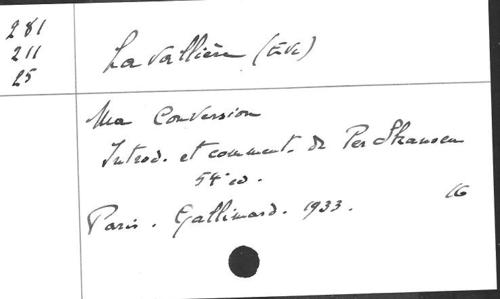 281
211
25
La Vallière (Eve)
Ma Conversion
Introd. et comment. de Per Skansen
5e ed.
Paris. Gallimard. 1933.
16